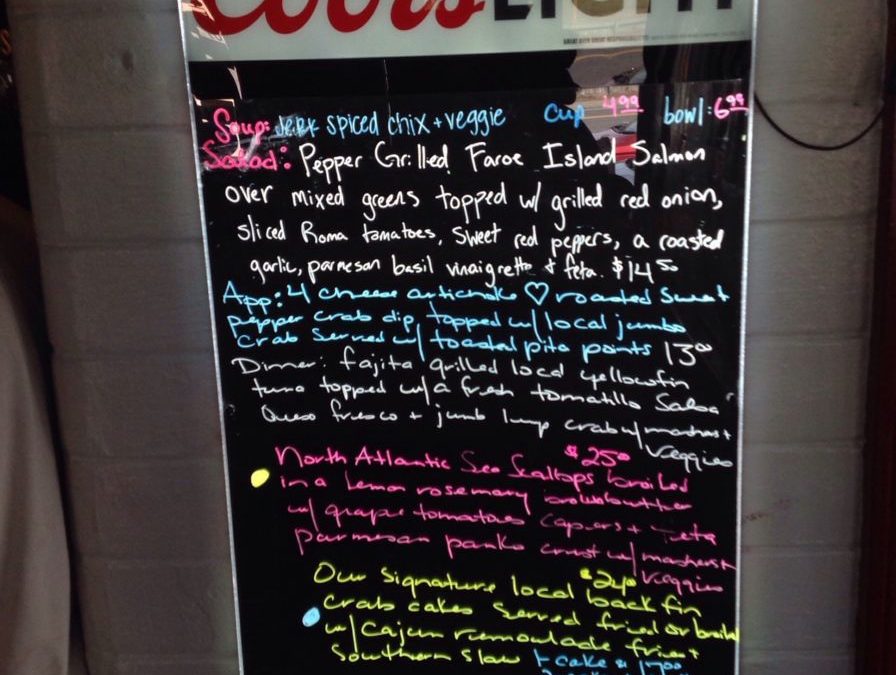 Coors LIGHT
GREAT BEER GREAT RESPONSIBILITY
Soup: Jerk spiced chix + veggie cup 4.99 bowl: 6.99
Salad: Pepper Grilled Faroe Island Salmon
over mixed greens topped w/ grilled red onion,
sliced Roma tomatoes, Sweet red peppers, a roasted
garlic, parmesan basil vinaigrette + feta. $14.50
App: 4 cheese artichoke ♡ roasted Sweet
pepper crab dip topped w/ local jumbo
crab served w/ toasted pita points 13.00
Dinner: fajita grilled local yellowfin
tuna topped w/ a fresh tomatillo Salsa
Queso fresco + jumb lump crab w/ mashers +
Veggies
$25.00
North Atlantic Sea Scallops broiled
in a lemon rosemary brown butter
w/ grape tomatoes capers + feta
parmesan panko crust w/ mashers +
Veggies
$24.00
Our signature local back fin
crab cakes served fried or broiled
w/ Cajun remoulade fries +
Southern Slaw 1 cake $17.00